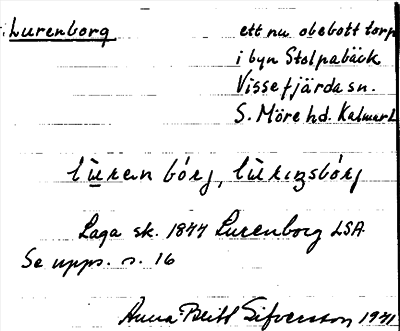 Lurenborg
ett nu obebott torp
i byn Stolpabäck
Vissefjärda sn.
S. Möre hd. Kalmar L
lùren bórj, lùringsbórj
Laga sk. 1877 Lurenborg LSA
Se upps. s. 16
Anna-Britt Sifversson 1971